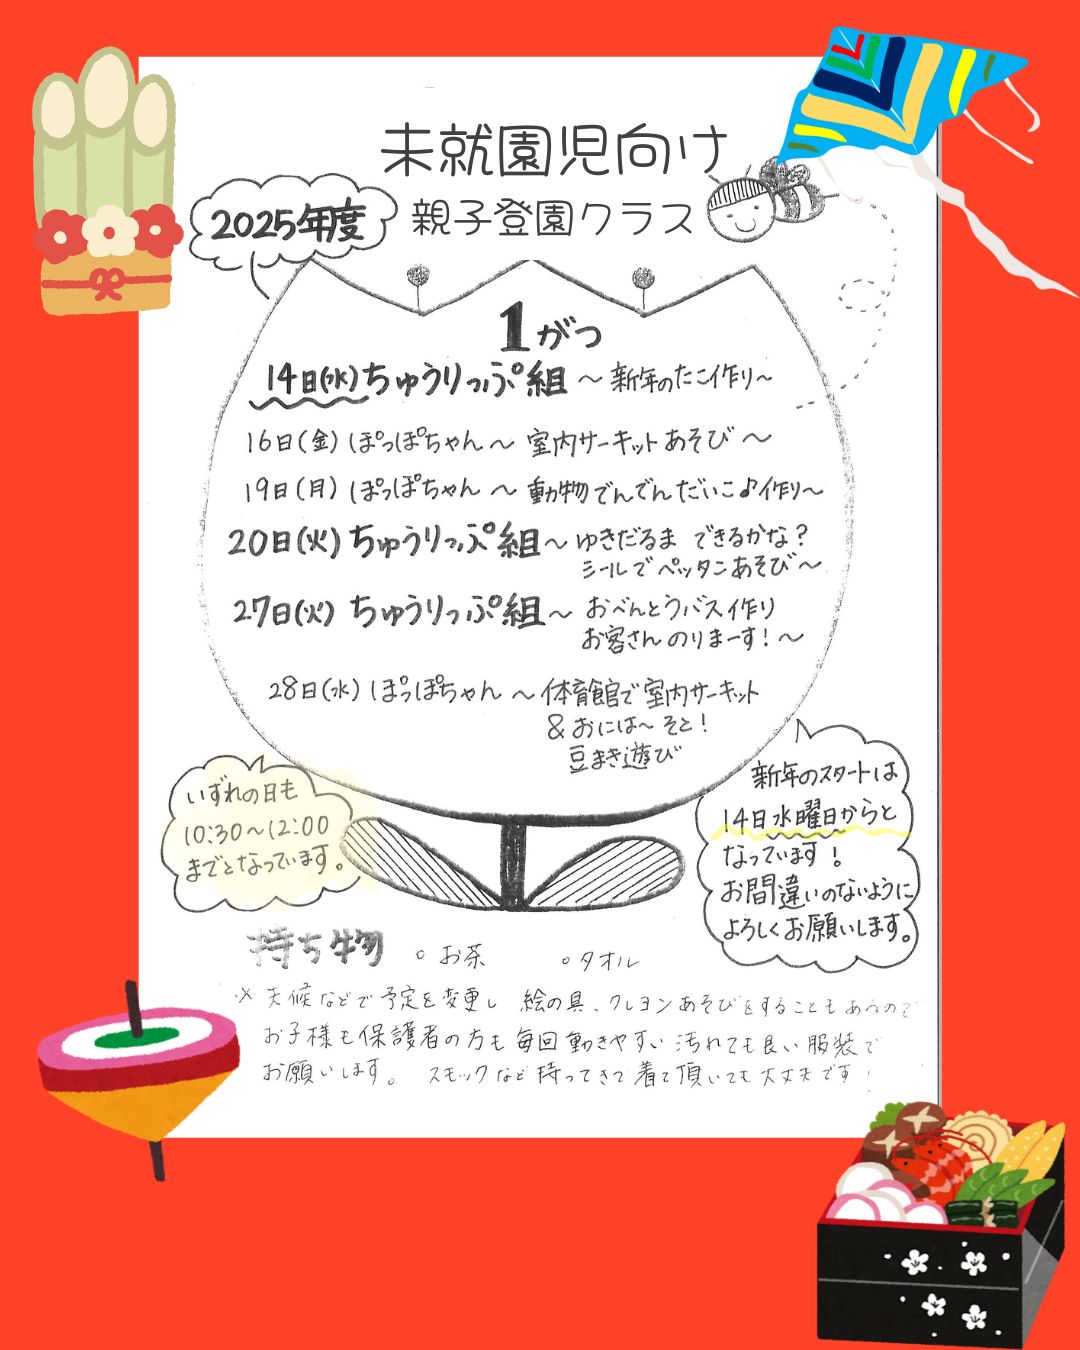 未就園児向け
2025年度
親子登園クラス
1がつ
14日(水)ちゅうりっぷ組～新年のたこ作り～
16日(金)ぽっぽちゃん～室内サーキットあそび～
19日(月)ぽっぽちゃん～動物でんでんだいこ♪作り～
20日(火)ちゅうりっぷ組～ゆきだるま できるかな？
シールでペッタンあそび～
27日(火)ちゅうりっぷ組～おべんとうバス作り
お客さんのりまーす！～
28日(水)ぽっぽちゃん～体育館で室内サーキット
&おには～そと！
豆まき遊び
いずれの日も
10:30～12:00
までとなっています。
新年のスタートは
14日水曜日からと
なっています！
お間違いのないように
よろしくお願いします。
持ち物 ○お茶 ○タオル
※天候などで予定を変更し 絵の具、クレヨンあそびをすることもあるので
お子様も保護者の方も毎回動きやすい汚れても良い服装で
お願いします。 スモックなど持ってきて着て頂いても大丈夫です！